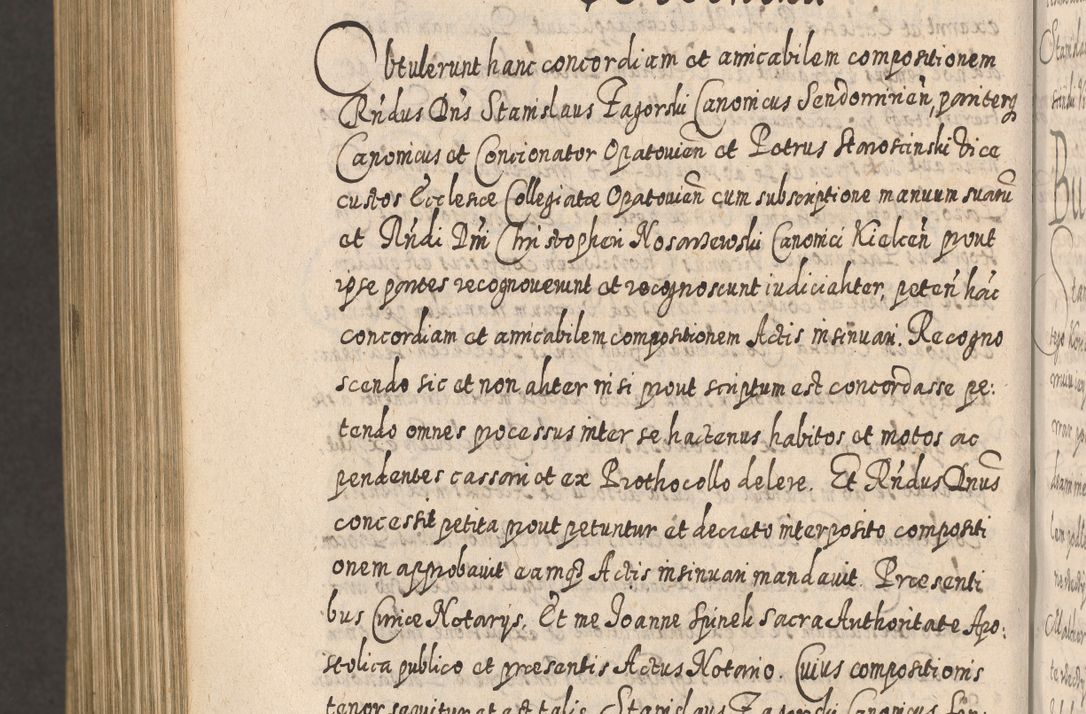 Obtulerunt hanc concordiam et amicabilem compositionem
Rndus Dns Stanislaus Zagorski Canonicus Sendomirien, pariterq
Canonicus et Concionator Opatovien et Petrus Staroscinski Vice
custos Ecclesiæ Collegiatæ Opatovien cum subscriptione manuum suarū
et Rndi Dni Christopheri Nosarzewski Canonici Kielcen prout
ipse partes recognoverunt et recognoscunt iudicialiter, peten hāc
concordiam et amicabilem compositionem Actis insinuari. Recogno
scendo sic et non aliter nisi prout scriptum est concordasse pe:
tendo omnes processus inter se hactenus habitos et motos ac
pendentes cassari et ex Prothocollo delere. Et Rndus Dnus
concessit petita prout petuntur et decreto interposito compositi
onem approbavit eamq Actis insinuari mandavit. Præsenti
bus Curiæ Notarijs. Et me Joanne Spinek Sacra Authoritate Apo:
stolica publico et præsentis Actus Notario. Cuius compositionis
tenor sequitur et est talis. Stanislaus Zagorski Canonicus Sen